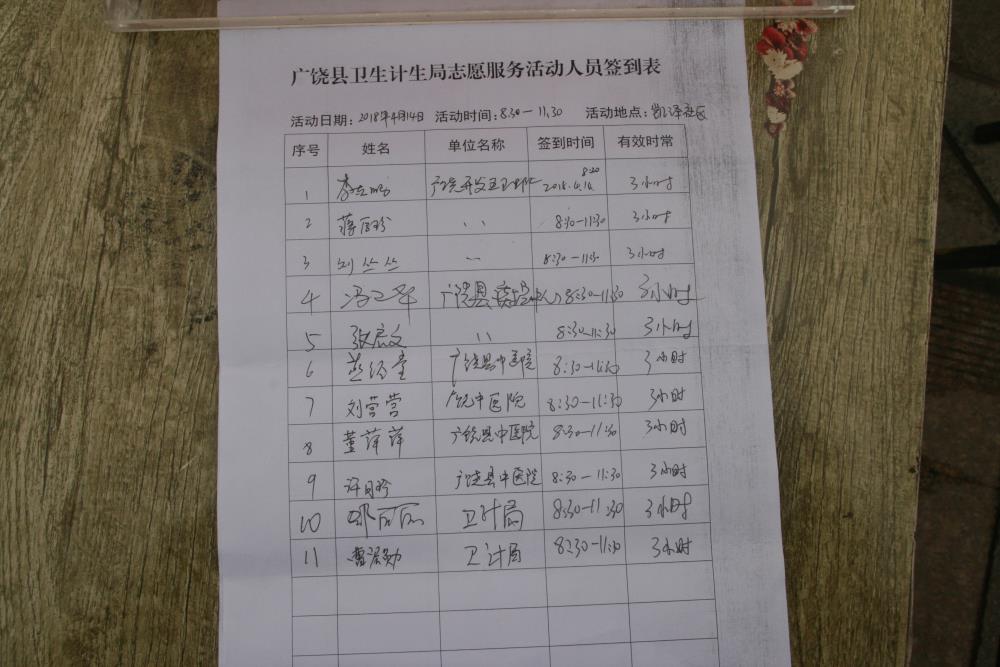 广饶县卫生计生局志愿服务活动人员签到表
活动日期：2018年4月14日 活动时间：8:30—11:30 活动地点：凯泽社区
序号 姓名 单位名称 签到时间 有效时常
8:20
1 广饶开发区卫 2018.4.14 3小时
2 蒋 〃 8:30-11:30 3小时
3 刘丝丝 〃 8:30-11:30 3小时
4 冯 广饶县 8:30-11:30 3小时
5 张宸文 〃 8:30-11:30 3小时
6 广饶县中医院 8:30-11:30 3小时
7 刘营营 广饶中医院 8:30-11:30 3小时
8 董萍萍 广饶县中医院 8:30-11:30 3小时
9 许 广饶县中医院 8:30-11:30 3小时
10 丽丽 卫计局 8:30-11:30 3小时
11 卫计局 8:30-11:30 3小时